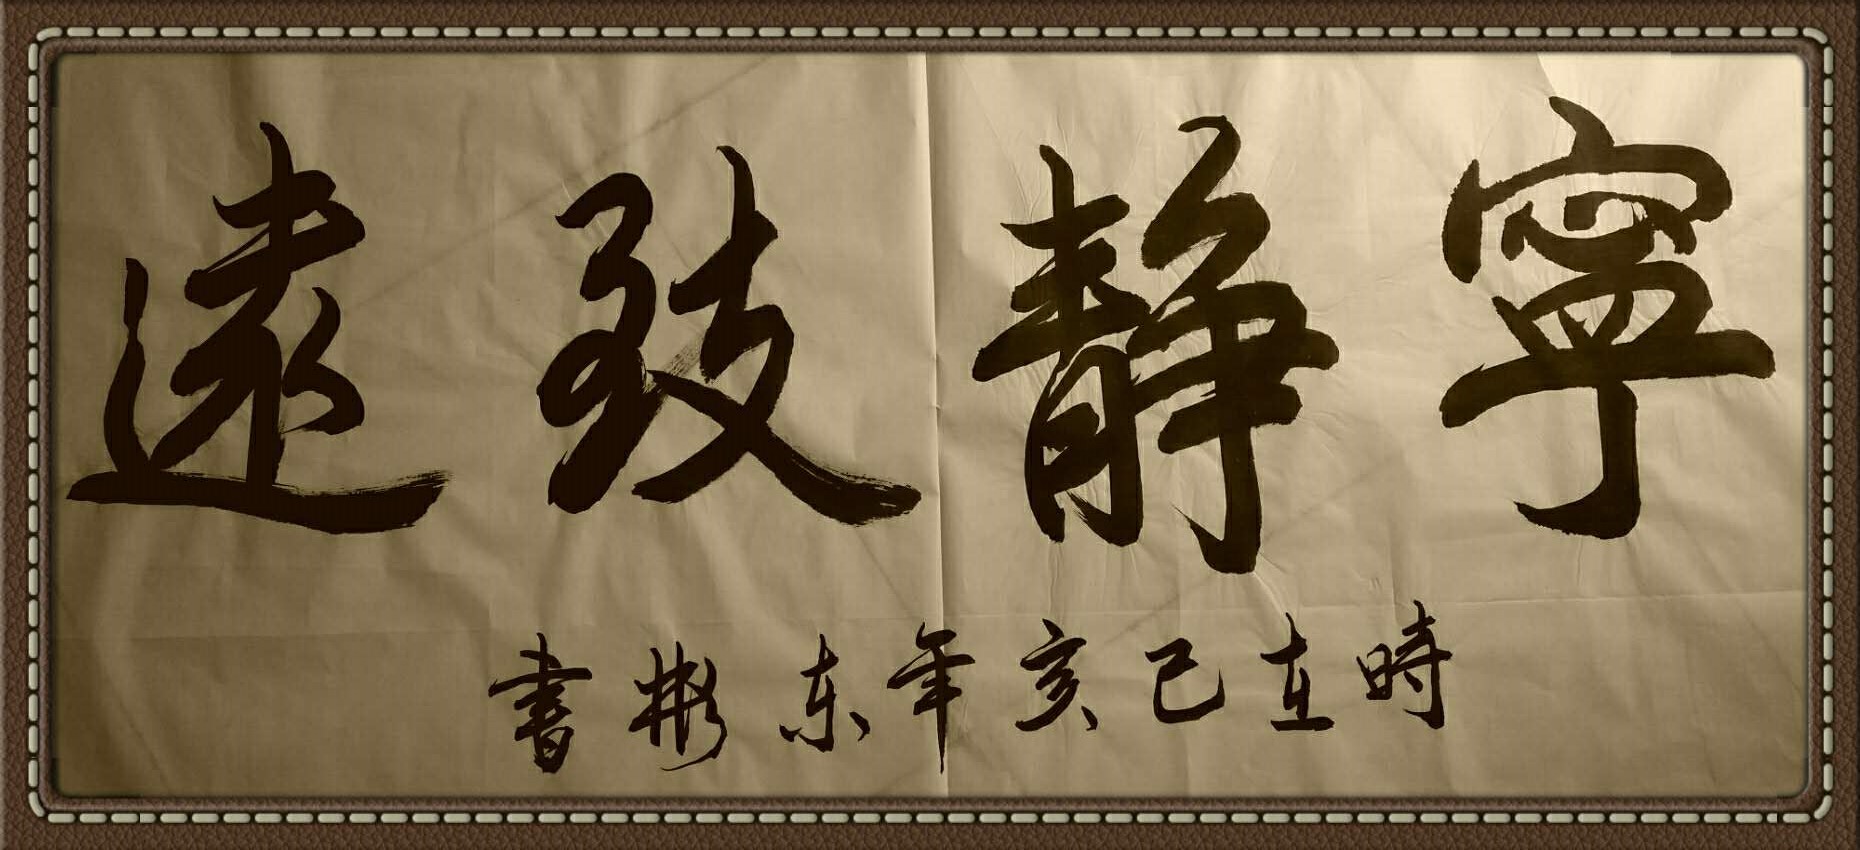 寧靜致遠
時在己亥年东彬書